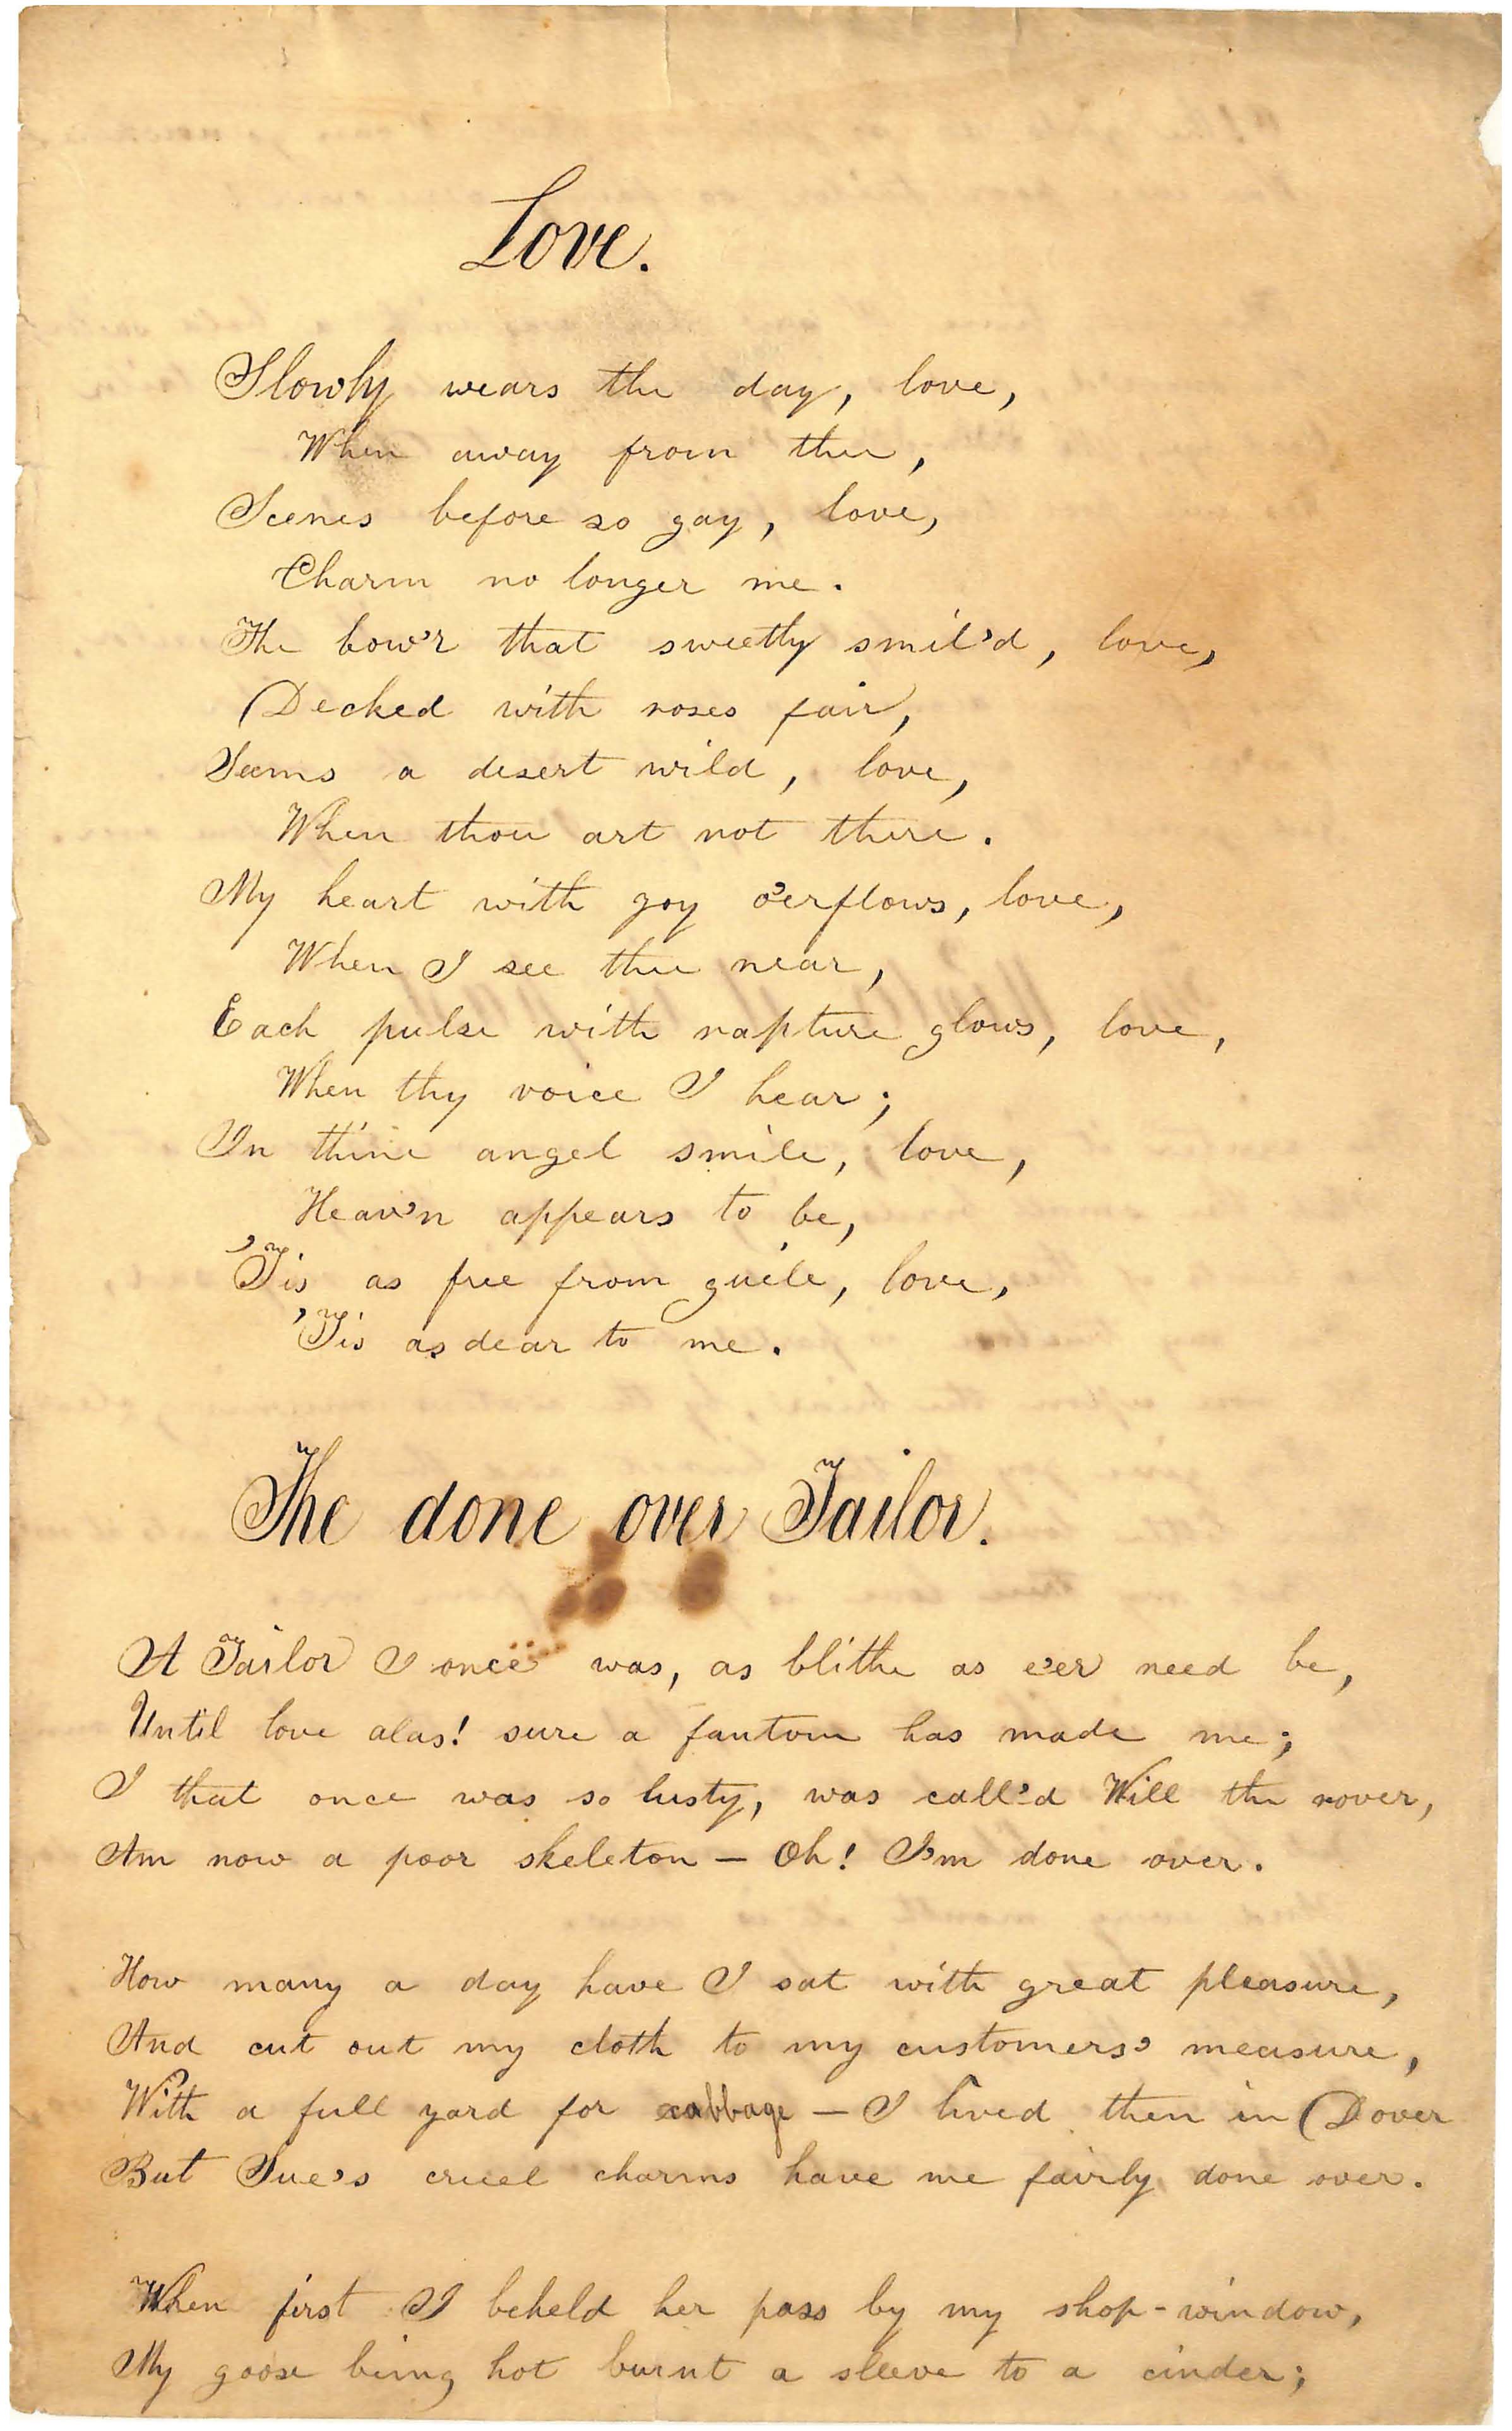 Love.
Slowly wears the day, love,
When away from thee,
Scenes before so gay, love,
Charm no longer me.
The bow'r that sweetly smil'd, love,
Decked with roses fair,
Seems a desert wild, love,
When thou art not there.
My heart with joy o'erflows, love,
When I see thee near,
Each pulse with rapture glows, love,
When thy voice I hear;
In thine angel smile, love,
Heav'n appears to be,
'Tis as free from guile, love,
'Tis as dear to me.
The done over Tailor.
A Tailor I once was, as blithe as e'er need be,
Until love alas! sure a fantom has made me;
I that once was so lusty, was call'd Will the rover,
Am now a poor skeleton – Oh! I'm done over.
How many a day have I sat with great pleasure,
And cut out my cloth to my customers' measure,
With a full yard for cabbage – I lived then in Dover
But Sue's cruel charms have me fairly done over.
When first I beheld her pass by my shop-window,
My goose being hot burnt a sleeve to a cinder;